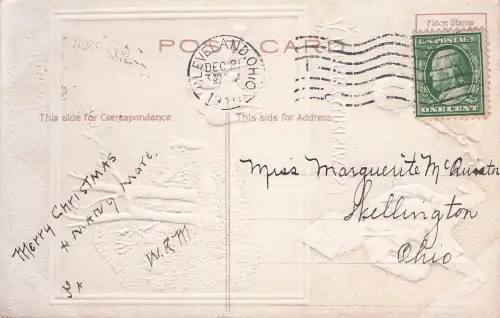 POST CARD
Place Stamp
CLEVELAND, OHIO
DEC 2
191
U.S. POSTAGE
ONE CENT
This side for Correspondence
This side for Address
Merry CHRISTMAS
& MANY More.
W.R.M.
Miss Marguerite
Wellington
Ohio